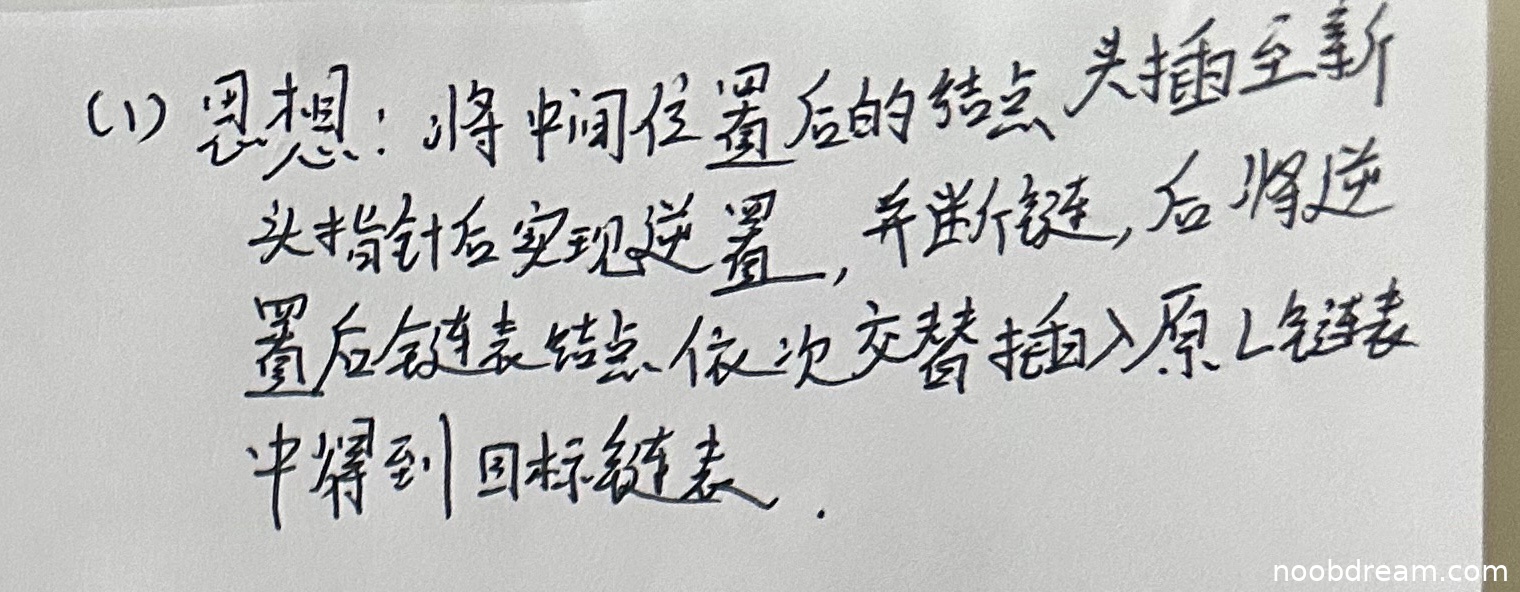 (1) 思想：将中间位置后的结点头插至新
头指针后实现逆置，并断链，后将逆
置后链表结点依次交替插入原L链表
中得到目标链表.
noobdream.com